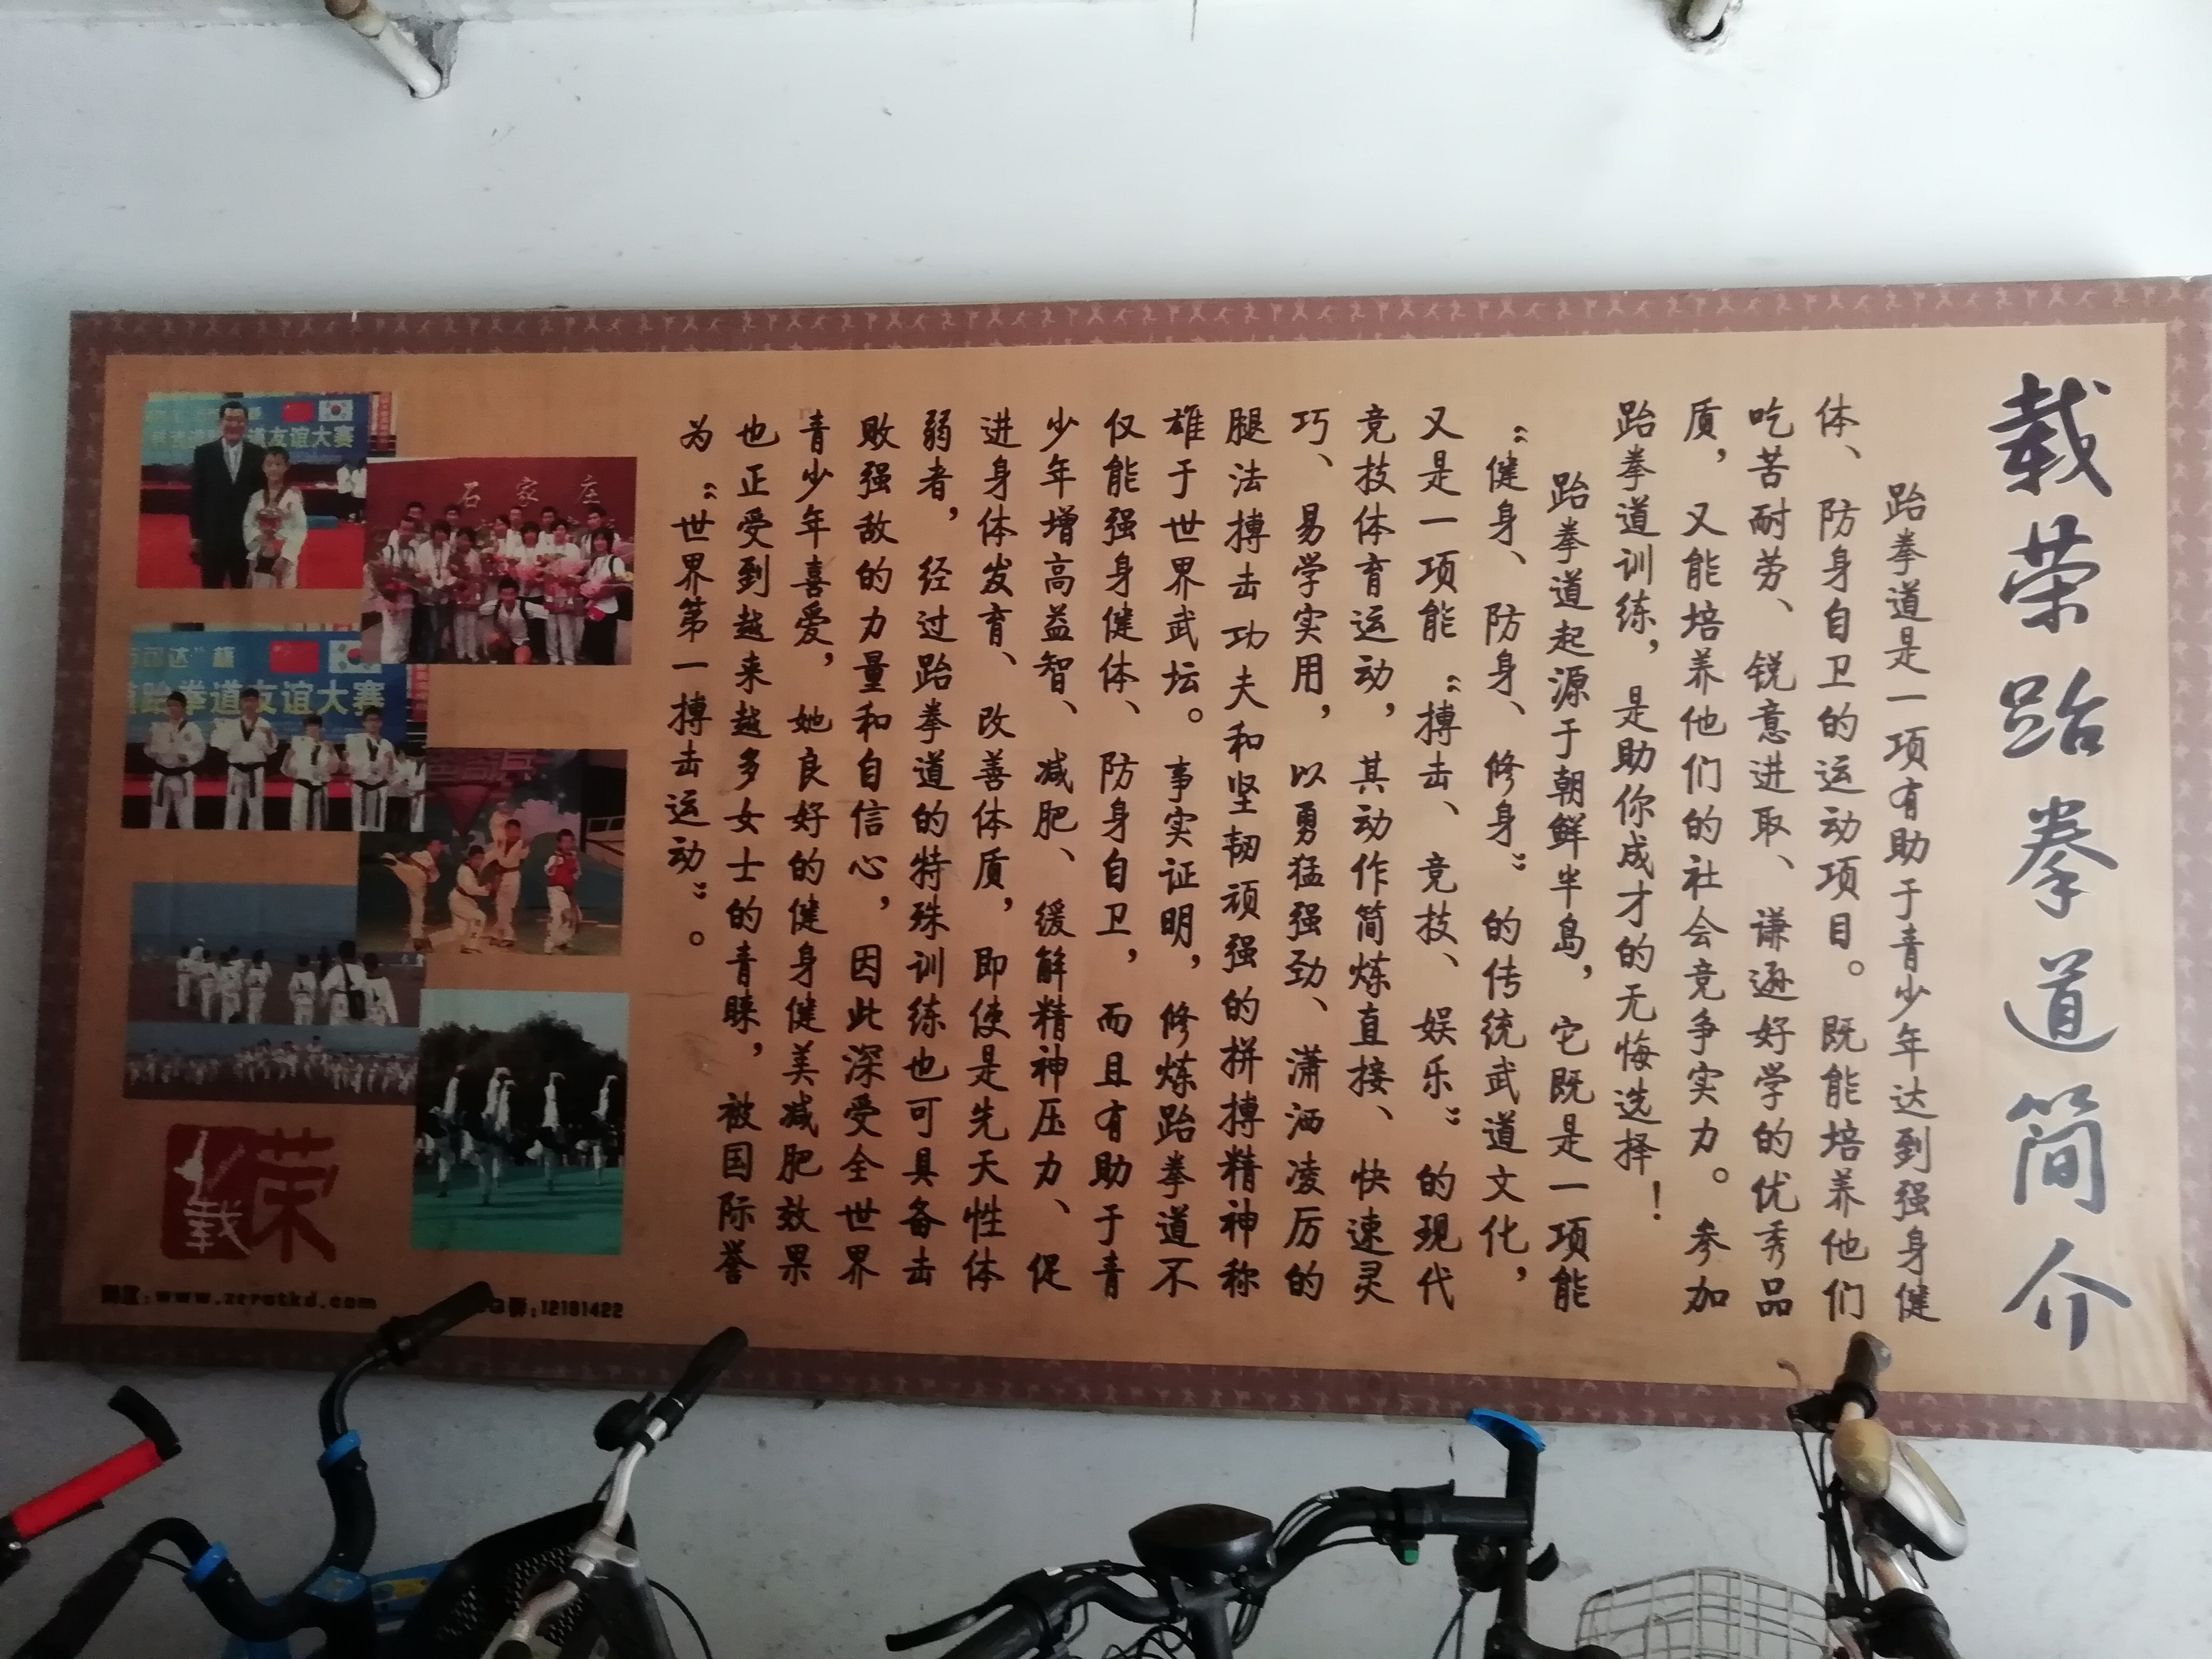 载荣跆拳道简介
跆拳道是一项有助于青少年达到强身健
体、防身自卫的运动项目。既能培养他们
吃苦耐劳、锐意进取、谦逊好学的优秀品
质，又能培养他们的社会竞争实力。参加
跆拳道训练，是助你成才的无悔选择！
跆拳道起源于朝鲜半岛，它既是一项能
“健身、防身、修身”的传统武道文化，
又是一项能“搏击、竞技、娱乐”的现代
竞技体育运动，其动作简炼直接、快速灵
巧、易学实用，以勇猛强劲、潇洒凌厉的
腿法搏击功夫和坚韧顽强的拼搏精神称
雄于世界武坛。事实证明，修炼跆拳道不
仅能强身健体、防身自卫，而且有助于青
少年增高益智、减肥、缓解精神压力、促
进身体发育、改善体质，即使是先天性体
弱者，经过跆拳道的特殊训练也可具备击
败强敌的力量和自信心，因此深受全世界
青少年喜爱，她良好的健身健美减肥效果
也正受到越来越多女士的青睐，被国际誉
为“世界第一搏击运动”。
道友谊大赛
石家庄
达”杯
跆拳道友谊大赛
载荣
群:12181422